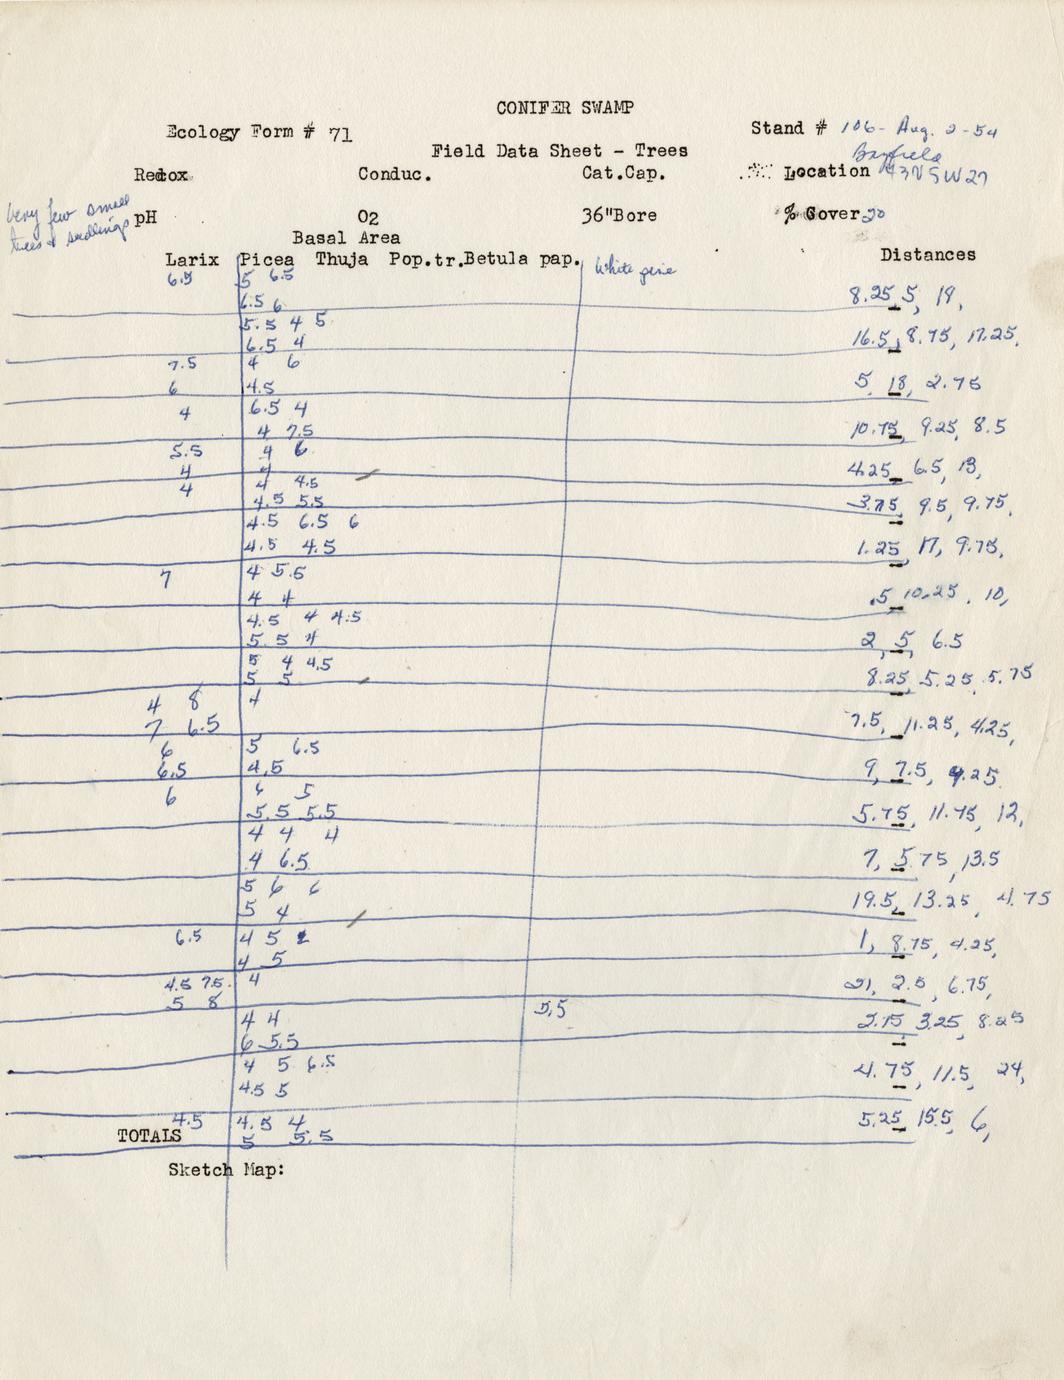 CONIFER SWAMP
Ecology Form # 71 Stand # 106- Aug. 2-54
Field Data Sheet - Trees Bayfield
Redox Conduc. Cat.Cap. Location 43N 5W 27
Very few small
trees & seedlings
pH O2 36"Bore % Cover 20
Basal Area
Larix Picea Thuja Pop.tr. Betula pap. White pine Distances
6.5 5 6.5
6.5 6 8.25, 5, 19,
5.5 4 5
6.5 4 16.5, 8.75, 17.25,
7.5 4 6
6 4.5 5, 18, 2.75
4 6.5 4
4 7.5 10.75, 9.25, 8.5
5.5 4 6
4 4 4.25, 6.5, 13,
4 4 4.5
4.5 5.5 3.75, 9.5, 9.75,
4.5 6.5 6
4.5 4.5 1.25, 17, 9.75,
7 4 5.5
4 4 .5, 10.25, 10,
4.5 4 4.5
5.5 4 2, 5, 6.5
5 4 4.5
5 5 8.25, 5.25, 5.75
4 8 4
7 6.5 7.5, 11.25, 4.25,
6 5 6.5
6.5 4.5 9, 7.5, 9.25
6 6 5
5.5 5.5 5.75, 11.75, 12,
4 4 4
4 6.5 7, 5.75, 13.5
5 6 6
5 4 19.5, 13.25, 4.75
6.5 4 5
4 5 1, 8.75, 4.25,
4.5 7.5 4
5 8 21, 2.5, 6.75,
4 4 5.5
6 5.5 2.75, 3.25, 8.25
4 5 6.5
4.5 5 4.75, 11.5, 24,
4.5 4.5 4
TOTALS 5 5.5 5.25, 15.5, 6,
Sketch Map: